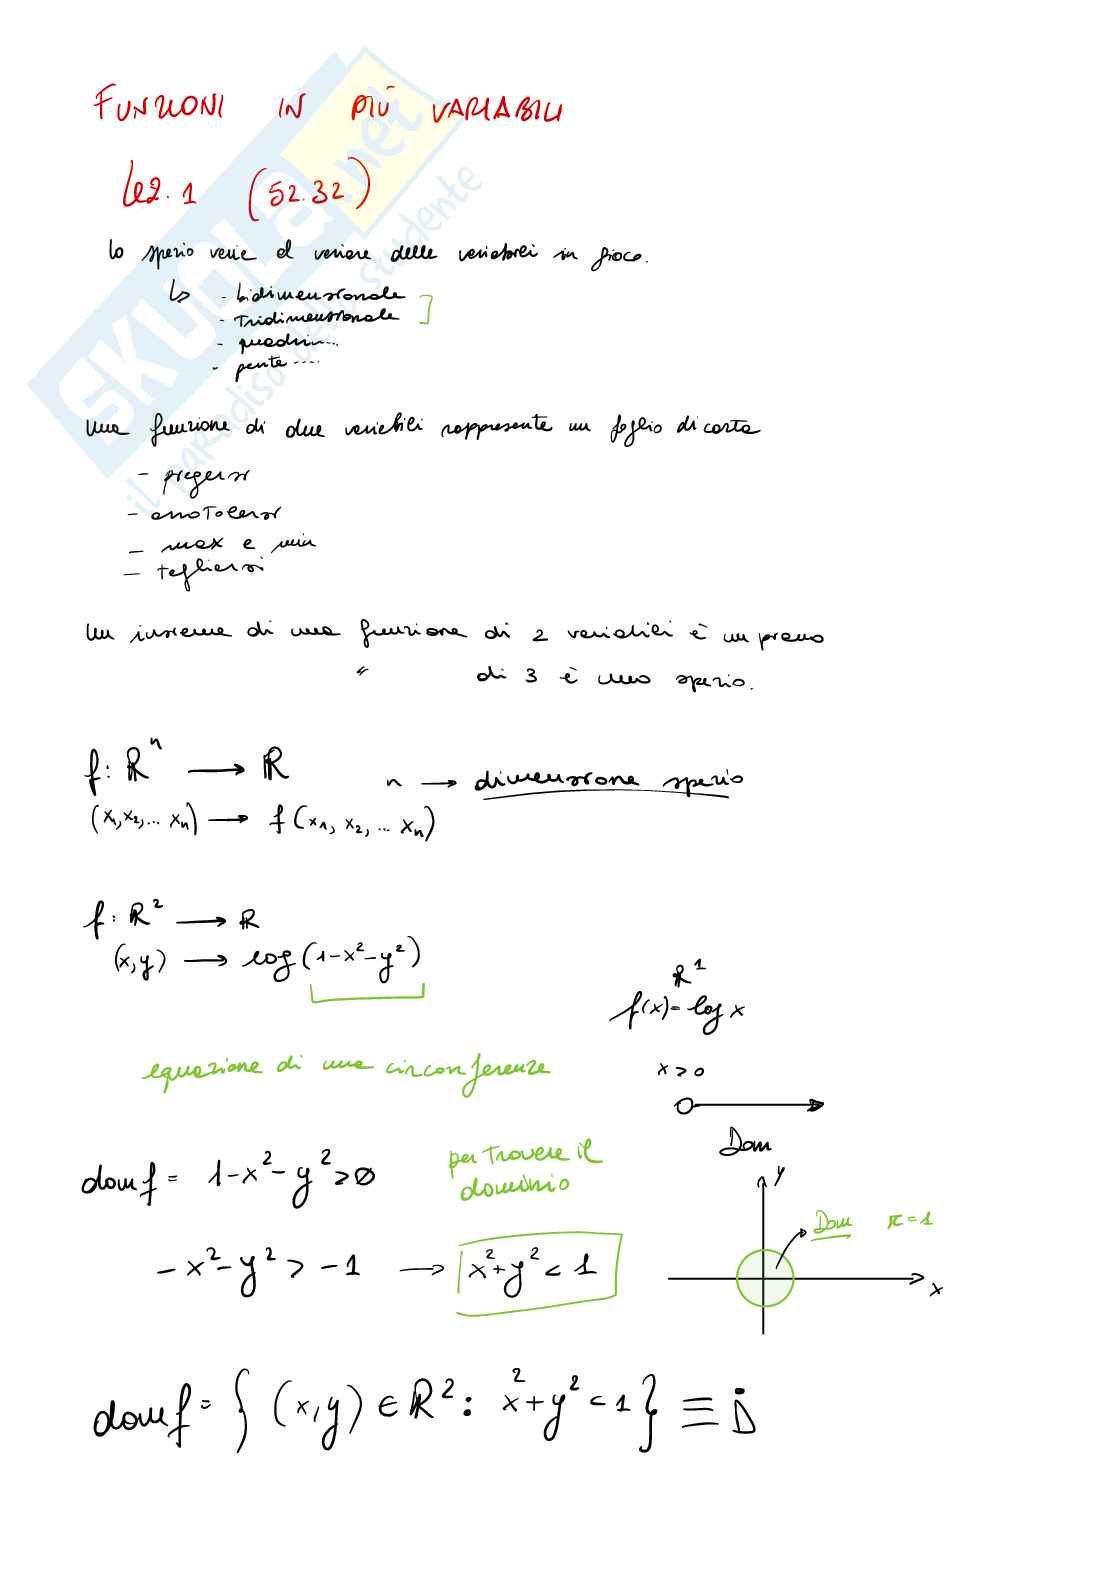 FUNZIONI IN PIÙ VARIABILI
Lez. 1 (52.32)
Lo spazio varia al variare delle variabili in gioco.
↳ - bidimensionale
- Tridimensionale
- quadri....
- penta ....
Una funzione di due variabili rappresenta un foglio di carta
- piegarsi
- arrotolarsi
- max e min
- Tagliarsi
Un insieme di una funzione di 2 variabili è un piano
" di 3 è uno spazio.
f: ℝⁿ → ℝ
n → dimensione spazio
(x₁, x₂, ... xₙ) → f(x₁, x₂, ... xₙ)
f: ℝ² → ℝ
(x,y) → log(1-x²-y²)
ℝ¹
f(x) = log x
equazione di una circonferenza
x > 0
Dom
dom f = 1-x²-y² > 0
per trovare il
dominio
y
Dom r=1
-x²-y² > -1 → x²+y² < 1
x
dom f = { (x,y) ∈ ℝ² : x²+y² < 1 } ≡ Ḋ
SKUOLA.net
il paradiso dello studente